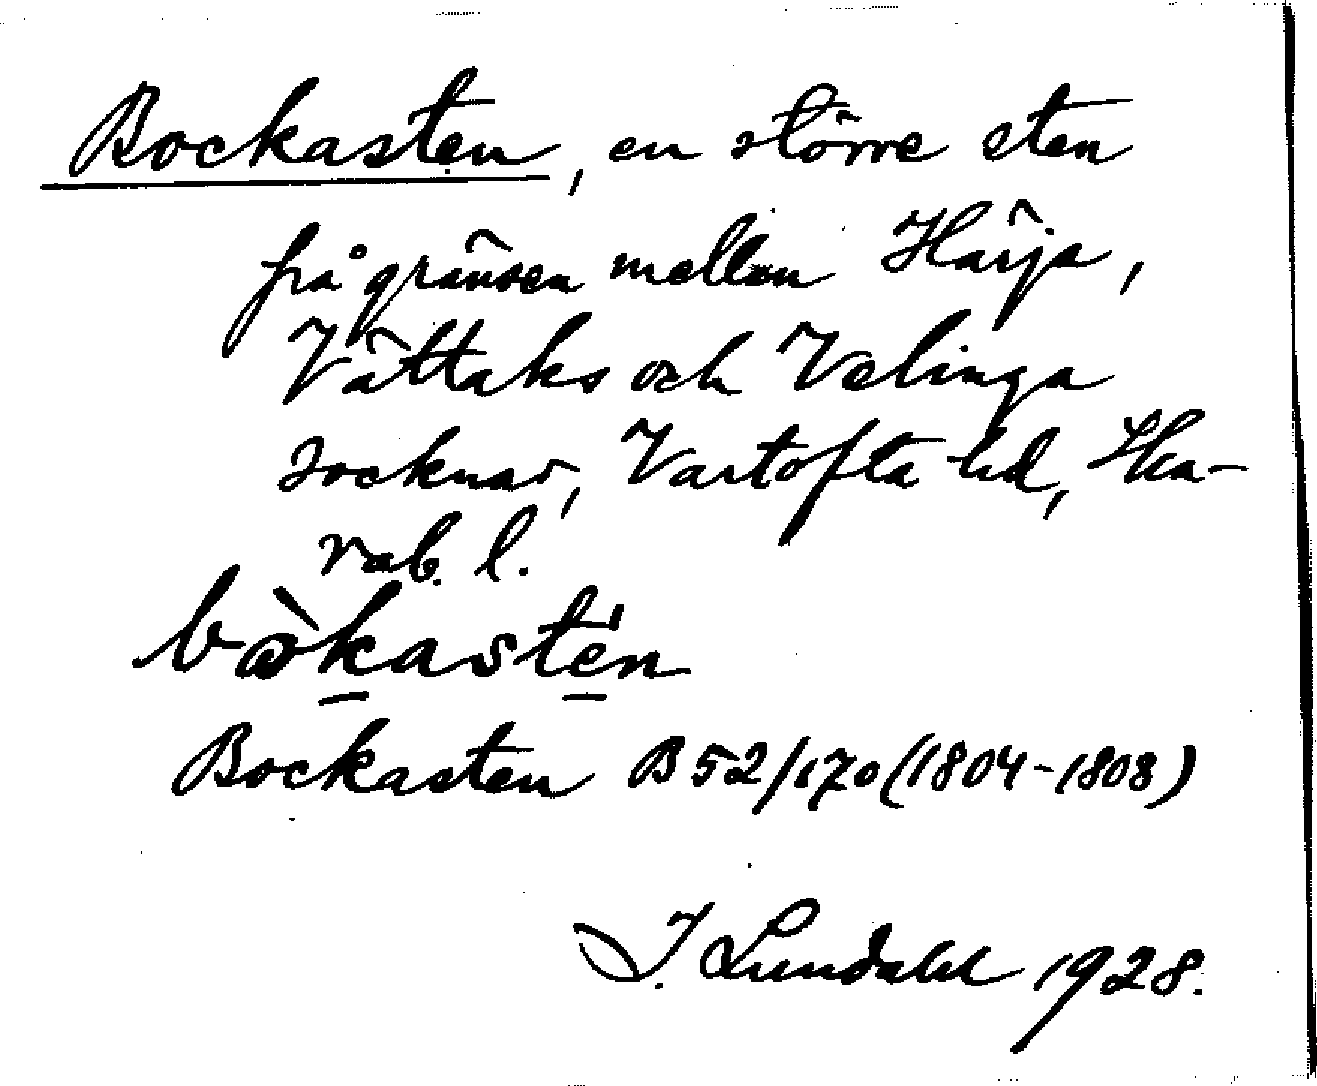 Bockasten, en större sten
på gränsen mellan Härja,
Vättaks och Velinga
socknar, Vartofta hd, Ska-
rab. l.
Bockasten B 52/170 (1804-1808)
I. Lundahl 1928.